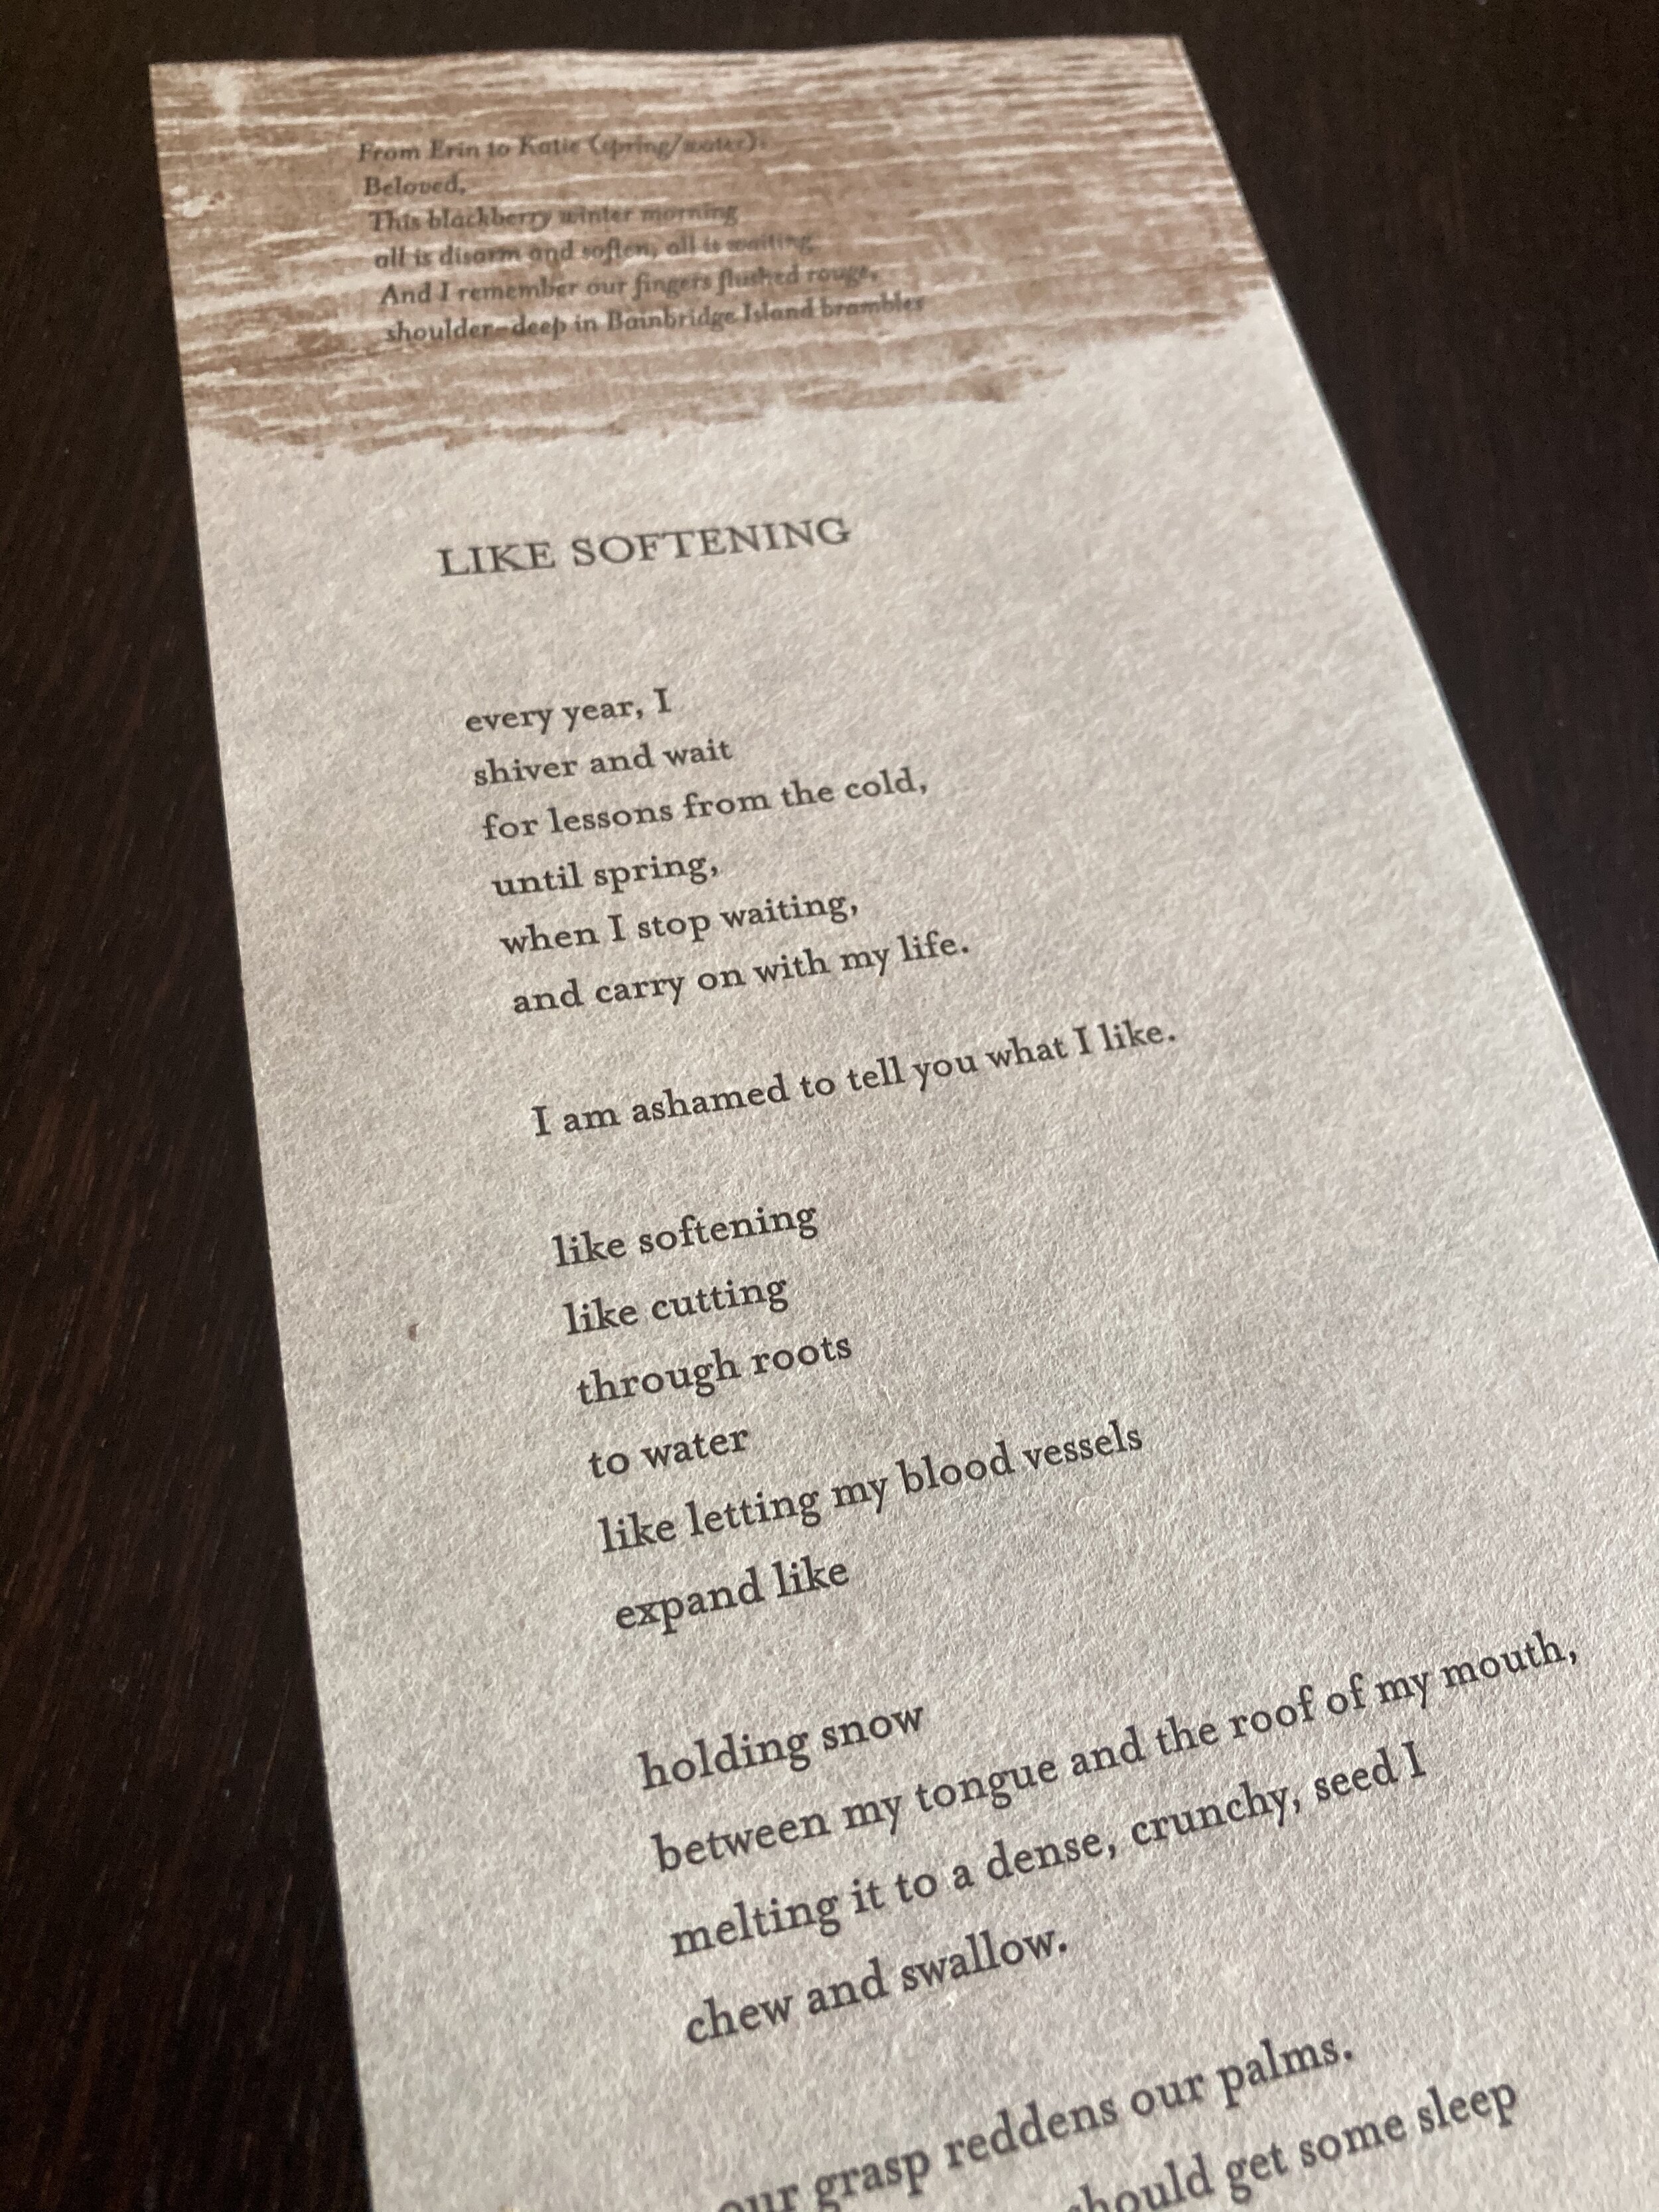 From Erin to Katie (spring/water):
Beloved,
This blackberry winter morning
all is disarm and soften, all is waiting.
And I remember our fingers flushed rouge,
shoulder-deep in Bainbridge Island brambles
LIKE SOFTENING
every year, I
shiver and wait
for lessons from the cold,
until spring,
when I stop waiting,
and carry on with my life.
I am ashamed to tell you what I like.
like softening
like cutting
through roots
to water
like letting my blood vessels
expand like
holding snow
between my tongue and the roof of my mouth,
melting it to a dense, crunchy, seed I
chew and swallow.
our grasp reddens our palms.
should get some sleep